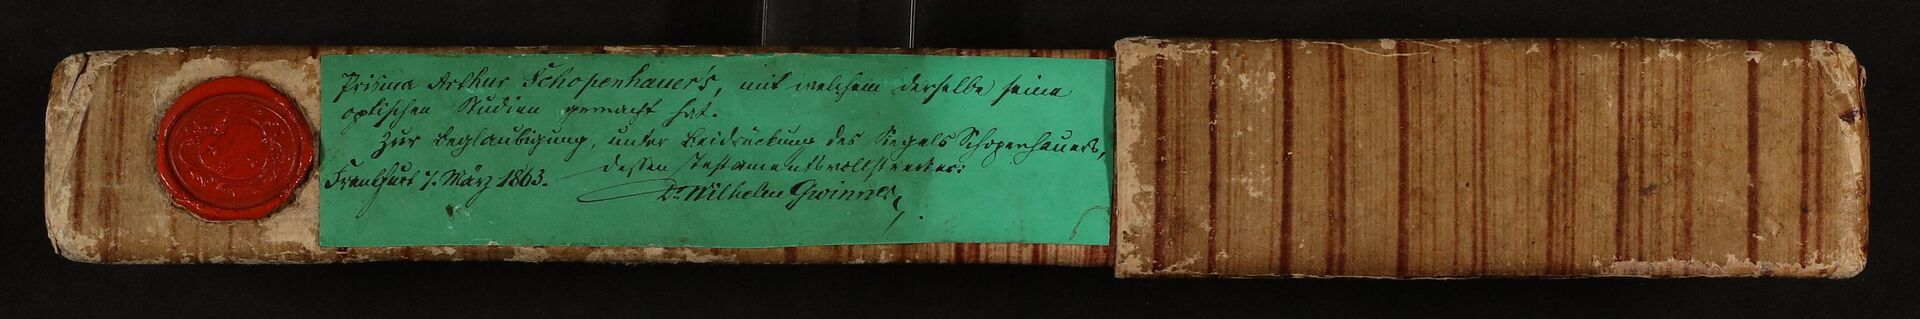 Prisma Arthur Schopenhauer's, mit welchem derselbe seine
optischen Studien gemacht hat.
Zur Beglaubigung, unter Beidrückung des Siegels Schopenhauers,
dessen Testamentsvollstrecker:
Frankfurt 7. März 1863.
Dr Wilhelm Gwinner